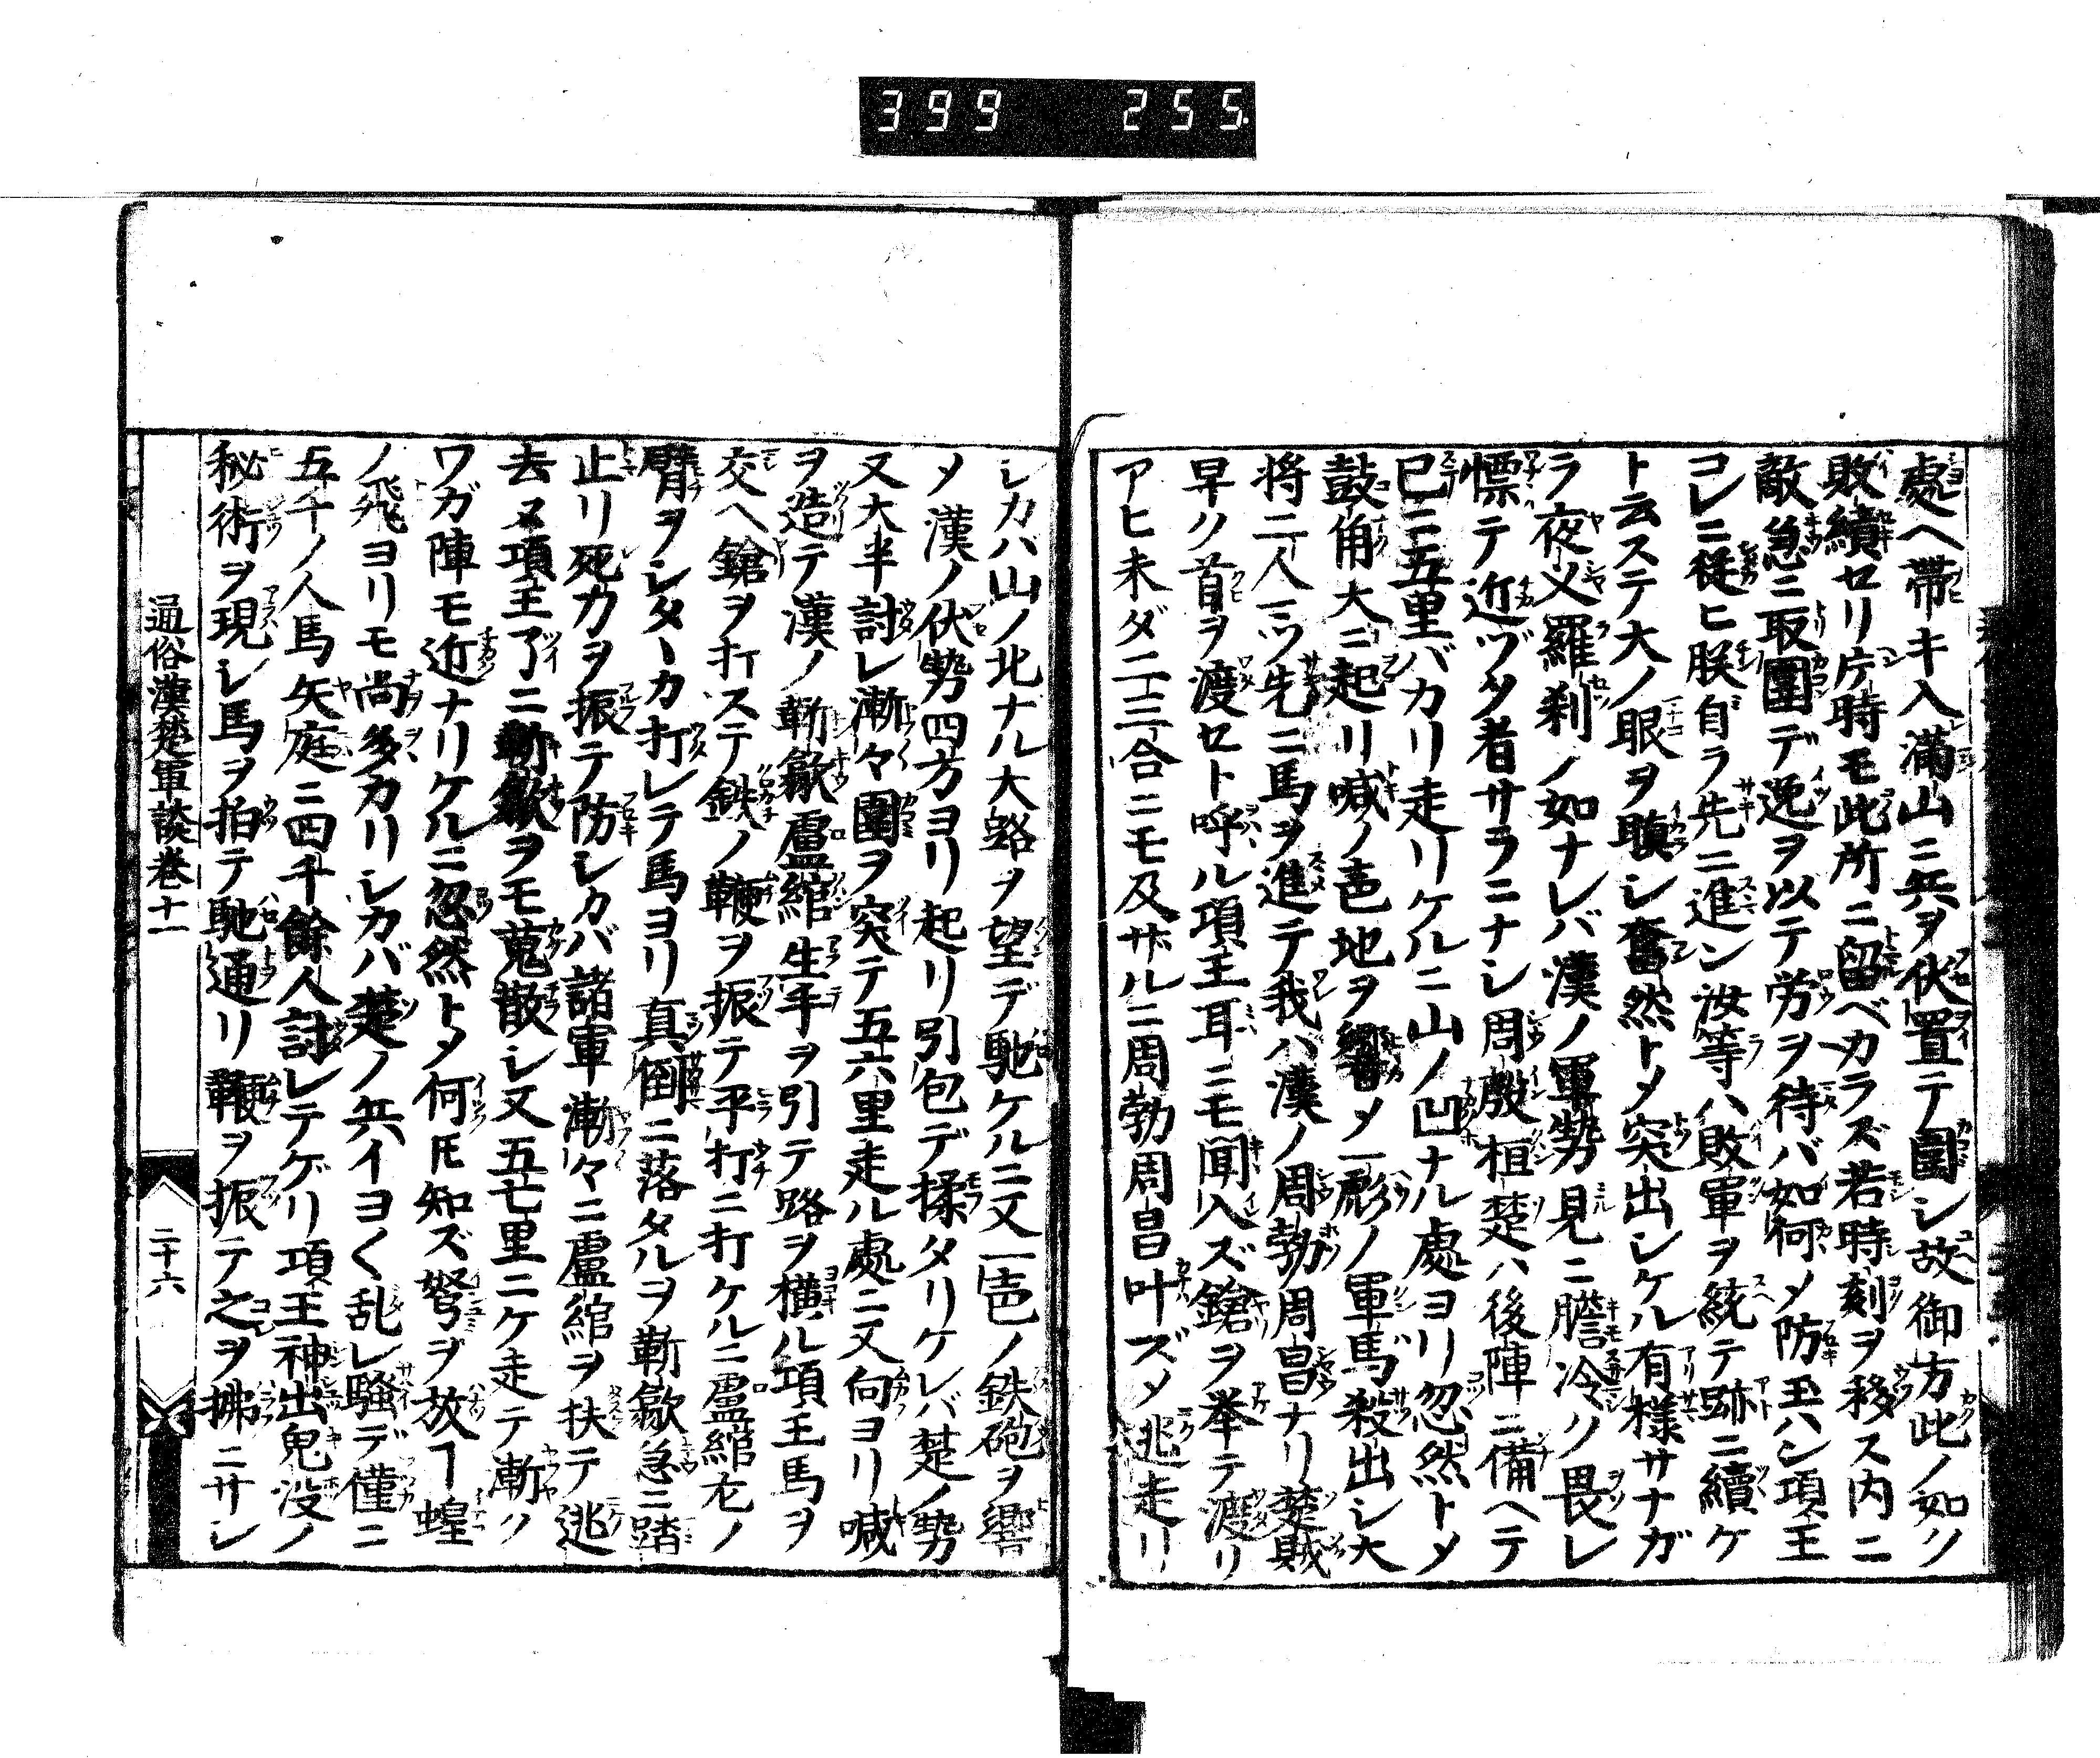 399 255.
處ヘ帶キ入滿山ニ兵ヲ伏置テ圍シ故御方此ノ如ク
敗績セリ片時モ此所ニ留ベカラズ若時刻ヲ移ス内ニ
敵急ニ取圍デ逸ヲ以テ労ヲ待バ如何メ防玉ハン項王
コレニ從ヒ朕自ラ先ニ進ン汝等ハ敗軍ヲ統テ跡ニ續ケ
ト云ステ大ノ眼ヲ瞋シ奮然トメ突出シケル有様サナガ
ラ夜叉羅刹ノ如ナレバ漢ノ軍勢見ニ膽冷ク畏レ
慄テ近ヅク者サラニナシ周殷桓楚ハ後陣ニ備ヘテ
已ニ五里バカリ走リケルニ山ノ凹ナル處ヨリ忽然トメ
鼓角大ニ起リ喊ノ声地ヲ響メ一彪ノ軍馬殺出シ大
将二人一ツ先ニ馬ヲ進テ我ハ漢ノ周勃周昌ナリ楚賊
早ク首ヲ渡セト呼ル項王耳ニモ聞入ズ鎗ヲ挙テ渡リ
アヒ未ダ二三合ニモ及ザルニ周勃周昌叶ズメ逃走リ
シカハ山ノ北ナル大路ヲ望デ馳ケルニ又一声ノ鉄砲ヲ響
メ漢ノ伏勢四方ヨリ起リ引包デ揉タリケレバ楚ノ勢
又大半討レ漸々圍ヲ突テ五六里走ル處ニ又向ヨリ喊
ヲ造テ漢ノ靳歙盧綰生手ヲ引テ路ヲ横ル項王馬ヲ
交ヘ鎗ヲ打ステ鉄ノ鞭ヲ振テ平打ニ打ケルニ盧綰左ノ
臂ヲシタヽカ打レテ馬ヨリ真倒ニ落タルヲ靳歙急ニ踏
止リ死力ヲ振テ防シカバ諸軍漸々ニ盧綰ヲ扶テ逃
去ヌ項王了ニ靳歙ヲモ蒐散シ又五七里ニケ走テ漸ク
ワガ陣モ近ナリケルニ忽然トメ何𪜈知ズ弩ヲ放ヿ蝗
ノ飛ヨリモ尚多カリシカバ楚ノ兵イヨ〱乱レ騒デ僅ニ
五千ノ人馬矢庭ニ四千餘人討レテゲリ項王神出鬼没ノ
秘術ヲ現レ馬ヲ拍テ馳通リ鞭ヲ振テ之ヲ拂ニサレ
通俗漢楚軍談巻十一 二十六